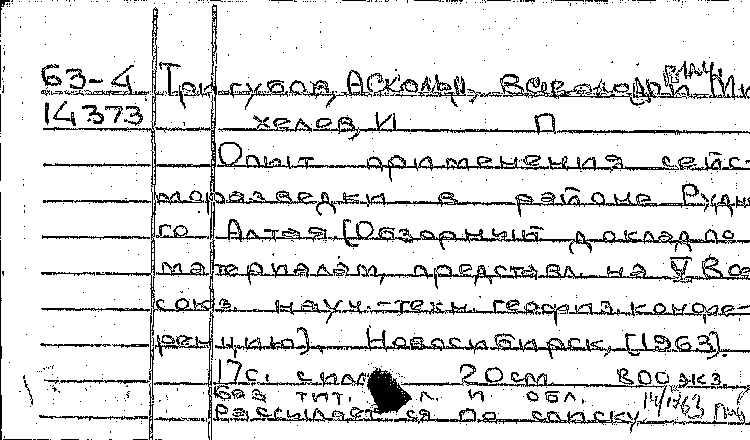 63-4 Тригубов, Аскольд, Всеволодов Ми
14373 хелев, И П
Опыт применения сейс-
моразведки в районе Рудно
го Алтая [Обзорный доклад по
материалам, представл. на V Все
союз. науч.-техн. геофиз. конфе-
ренцию]. Новосибирск, [1963].
17с. с илл. 20см 800экз
Без тит. л. и обл.
Рассылается по списку